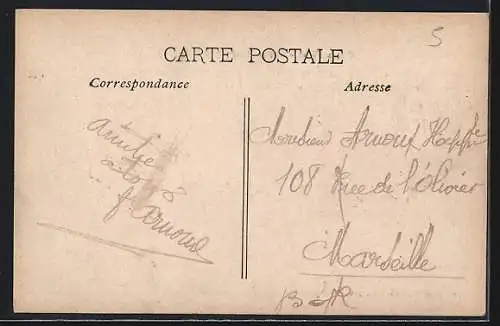 5
CARTE POSTALE
Correspondance
Adresse
Amitié
à tous
J. Arnoux
Monsieur Arnoux
108 Rue de l'Olivier
Marseille
B d R